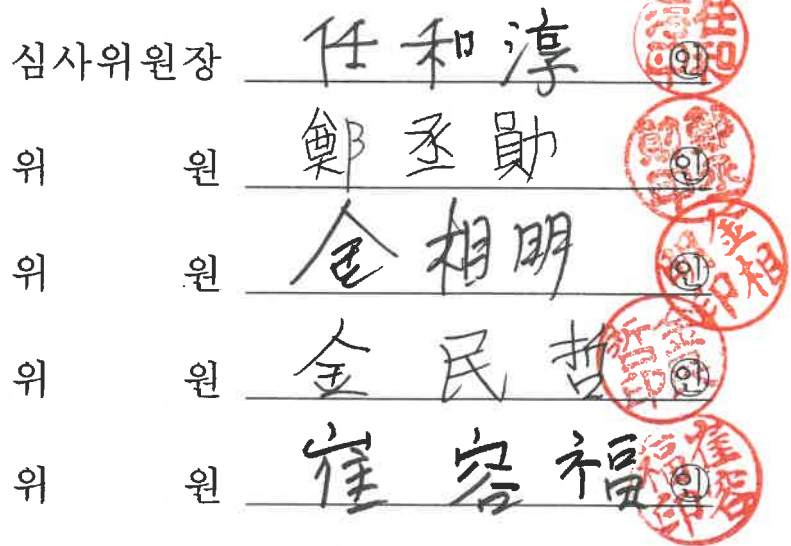 심사위원장 任和淳 인
위 원 鄭丞勛 인
위 원 金相明 인
위 원 金民哲 인
위 원 崔容福 인